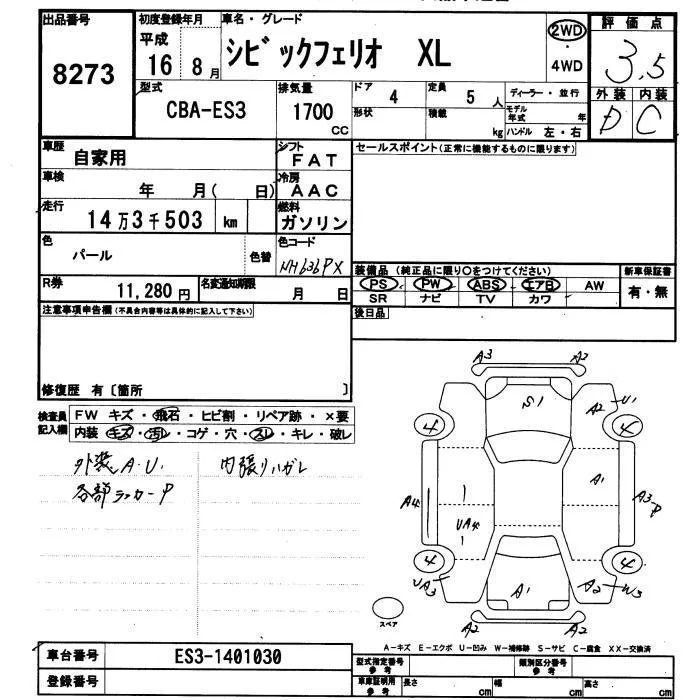 出品番号
8273
初度登録年月
平成
16 8月
車名・グレード
シビックフェリオ XL
2WD
4WD
評価点
3.5
外装 内装
D C
型式
CBA-ES3
排気量
1700
CC
ドア 4
形状
定員 5 人
積載 kg
ディーラー・並行
モデル年式 年
ハンドル 左・右
車歴
自家用
シフト
FAT
車検
年 月( 日)
冷房
AAC
走行
14万3千503 km
燃料
ガソリン
色
パール
色替
色コード
NH636PX
R券
11,280円
名変通知期限
月 日
セールスポイント(正常に機能するものに限ります)
装備品 (純正品に限り○をつけてください)
PS PW ABS エアB AW
SR ナビ TV カワ
新車保証書
有・無
後日品
注意事項申告欄(不具合内容等は具体的に記入して下さい)
修復歴 有〔箇所 〕
検査員記入欄
FW キズ・飛石・ヒビ割・リペア跡・×要
内装 キズ・汚レ・コゲ・穴・スレ・キレ・破レ
外装 A.U.
各部ラッカーP
内張リハガレ
A3
A2
S1
A2
U1
4
4
A4
UA4
A1
A3
P
4
4
UA3
A1
A2
W3
A2
A2
スペア
A-キズ E-エクボ U-凹み W-補修跡 S-サビ C-腐食 XX-交換済
車台番号
ES3-1401030
登録番号
型式指定番号
参考
類別区分番号
参考
車庫証明用
参考
長さ cm
幅 cm
高さ cm